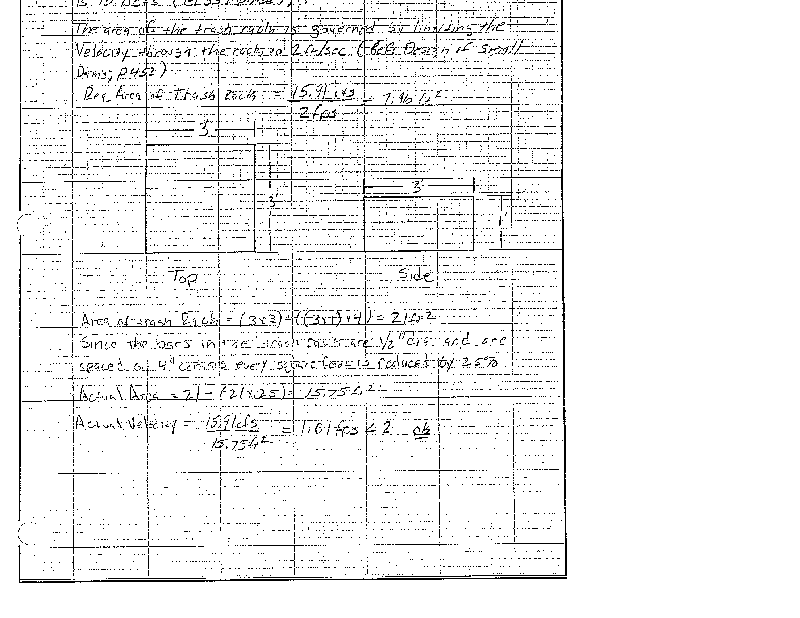 The area of the trash rack is governed by limiting the
Velocity through the rack to 2 ft/sec. (Ref: Design of Small
Dams, p452)
Req Area of Trash Rack = 15.91 cfs / 2 fps = 7.96 ft²
3'
3'
3'
1'
Top
Side
Area of trash Rack = (3x3)+((3x1)x4) = 21 ft²
Since the bars in the trash rack are 1/2" dia. and are
spaced on 4" centers every square foot is reduced by 25%
Actual Area = 21 - (21x.25) = 15.75 ft²
Actual Velocity = 15.91 cfs / 15.75 ft² = 1.01 fps < 2 ok